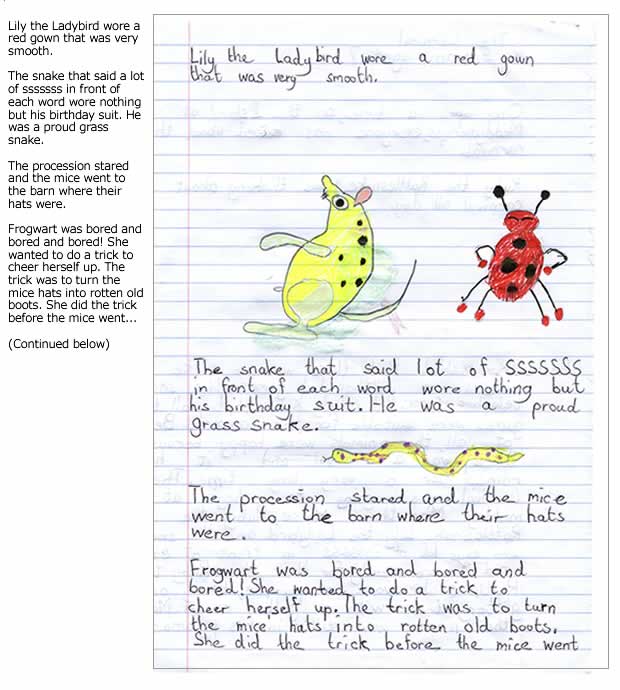 Lily the Ladybird wore a
red gown that was very
smooth.
The snake that said a lot
of sssssss in front of
each word wore nothing
but his birthday suit. He
was a proud grass
snake.
The procession stared
and the mice went to
the barn where their
hats were.
Frogwart was bored and
bored and bored! She
wanted to do a trick to
cheer herself up. The
trick was to turn the
mice hats into rotten old
boots. She did the trick
before the mice went...
(Continued below)
Lily the Ladybird wore a red gown
that was very smooth.
The snake that said lot of SSSSSSS
in front of each word wore nothing but
his birthday suit. He was a proud
grass snake.
The procession stared and the mice
went to the barn where their hats
were.
Frogwart was bored and bored and
bored! She wanted to do a trick to
cheer herself up. The trick was to turn
the mice' hats into rotten old boots.
She did the trick before the mice went